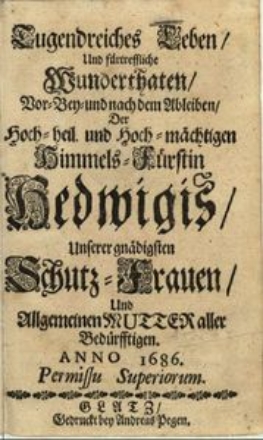 Tugendreiches Leben/
Und fürtreffliche
Wunderthaten/
Vor-Bey-und nach dem Ableiben/
Der
Hoch-heil. und Hoch-mächtigen
Himmels-Fürstin
Hedwigis/
Unserer gnädigsten
Schutz-Frauen/
Und
Allgemeinen MUTTER aller
Bedürfftigen.
ANNO 1686.
Permissu Superiorum.
GLATZ/
Gedruckt bey Andreas Pegen.